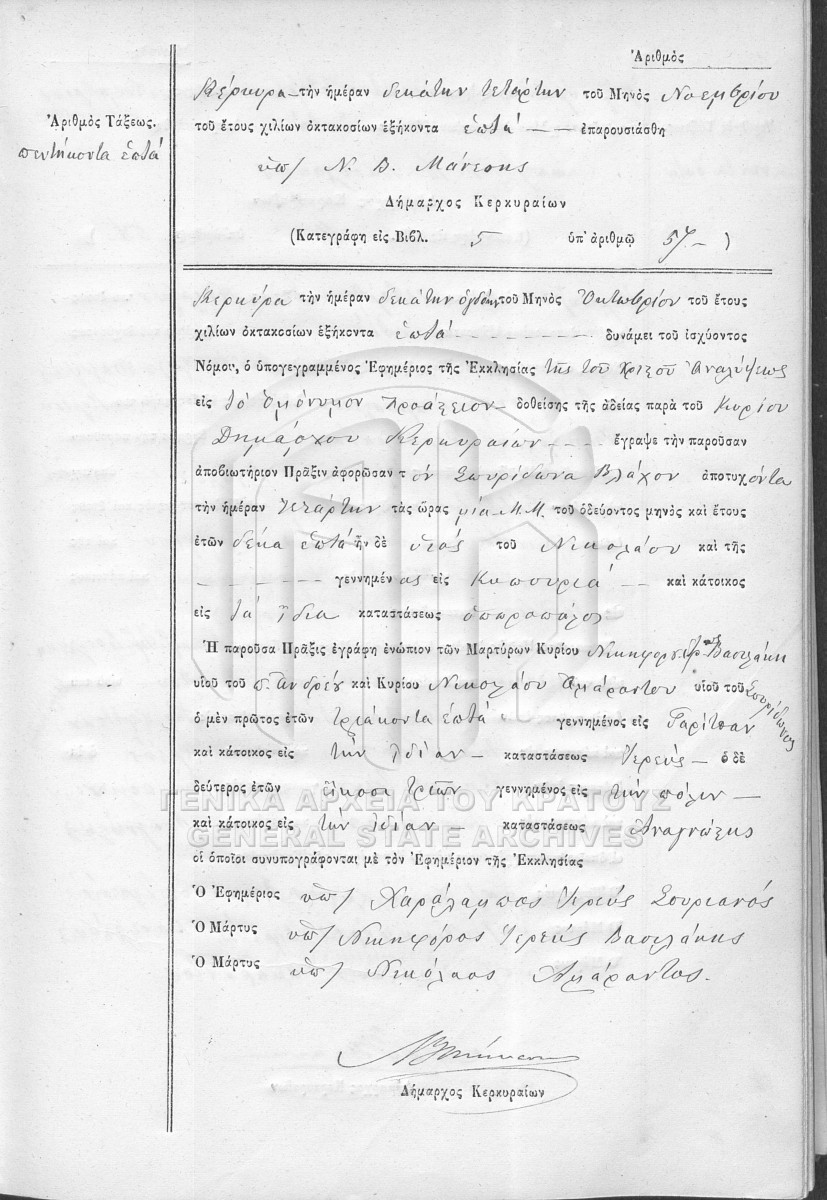 Ἀριθμὸς
Κέρκυρα τὴν ἡμέραν δεκάτην τετάρτην τοῦ Μηνὸς Νοεμβρίου
Ἀριθμὸς Τάξεως.
τοῦ ἔτους χιλίων ὀκτακοσίων ἑξήκοντα ἑπτά — — ἐπαρουσιάσθη
πεντήκοντα ἑπτά
ὑπ/ Ν. Β. Μάνεσης
Δήμαρχος Κερκυραίων
(Κατεγράφη εἰς Βιβλ. 5 ὑπ' ἀριθμῷ 57 — )
Κερκύρα τὴν ἡμέραν δεκάτην ὀγδόην τοῦ Μηνὸς Ὀκτωβρίου τοῦ ἔτους
χιλίων ὀκτακοσίων ἑξήκοντα ἑπτά — — — — — δυνάμει τοῦ ἰσχύοντος
Νόμου, ὁ ὑπογεγραμμένος Ἐφημέριος τῆς Ἐκκλησίας τῆς τοῦ Χριστοῦ Ἀναλήψεως
εἰς τὸ ὁμόνυμον Προάστειον — δοθείσης τῆς ἀδείας παρὰ τοῦ Κυρίου
Δημάρχου Κερκυραίων — — — ἔγραψε τὴν παροῦσαν
ἀποβιωτήριον Πρᾶξιν ἀφορῶσαν τὸν Σπυρίδωνα Βλάχον ἀποτυχόντα
τὴν ἡμέραν τετάρτην τὰς ὥρας μία Μ.Μ. τοῦ ὁδεύοντος μηνὸς καὶ ἔτους
ἐτῶν δέκα ἑπτά ἦν δὲ υἱός τοῦ Νικολάου καὶ τῆς
— — — — — γεννημένος εἰς — καὶ κάτοικος
εἰς τὰ ἴδια καταστάσεως ὀπωροπώλου
Ἡ παροῦσα Πρᾶξις ἐγράφη ἐνώπιον τῶν Μαρτύρων Κυρίου Βασιλάκη
υἱοῦ τοῦ π. Ἀνδρέου καὶ Κυρίου Νικολάου Ἀμάραντου υἱοῦ τοῦ Σπυρίδωνος
ὁ μὲν πρῶτος ἐτῶν τριάκοντα ἑπτά γεννημένος εἰς Γαρίτσαν
καὶ κάτοικος εἰς τὴν ἰδίαν — καταστάσεως Ἱερεύς — ὁ δὲ
δεύτερος ἐτῶν εἴκοσι τριῶν γεννημένος εἰς τὴν πόλιν —
ΓΕΝΙΚΑ ΑΡΧΕΙΑ ΤΟΥ ΚΡΑΤΟΥΣ
καὶ κάτοικος εἰς τὴν ἰδίαν — καταστάσεως Ἀναγνώστης
GENERAL STATE ARCHIVES
οἱ ὁποῖοι συνυπογράφονται μὲ τὸν Ἐφημέριον τῆς Ἐκκλησίας
Ὁ Ἐφημέριος ὑπ/ Χαράλαμπος Ἱερεύς Σουριανός
Ὁ Μάρτυς ὑπ/ Νικηφόρος Ἱερεύς Βασιλάκης
Ὁ Μάρτυς ὑπ/ Νικόλαος Ἀμάραντος.
Δήμαρχος Κερκυραίων